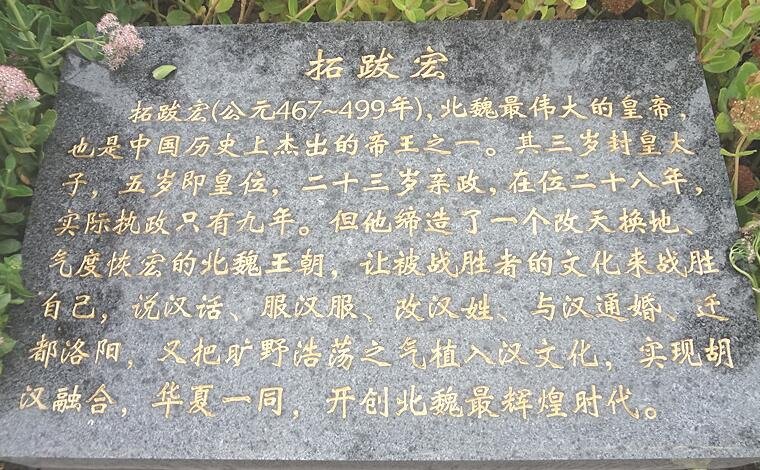 拓跋宏
拓跋宏(公元467~499年),北魏最伟大的皇帝,
也是中国历史上杰出的帝王之一。其三岁封皇太
子，五岁即皇位，二十三岁亲政,在位二十八年,
实际执政只有九年。但他缔造了一个改天换地、
气度恢宏的北魏王朝，让被战胜者的文化来战胜
自己，说汉话、服汉服、改汉姓、与汉通婚、迁
都洛阳，又把旷野浩荡之气植入汉文化，实现胡
汉融合，华夏一同，开创北魏最辉煌时代。